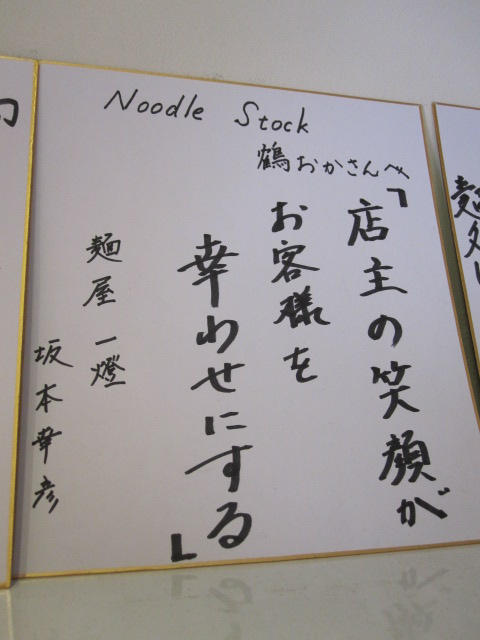 Noodle Stock
鶴おかさんへ
「店主の笑顔が
お客様を
幸わせにする」
麺屋一燈
坂本幸彦